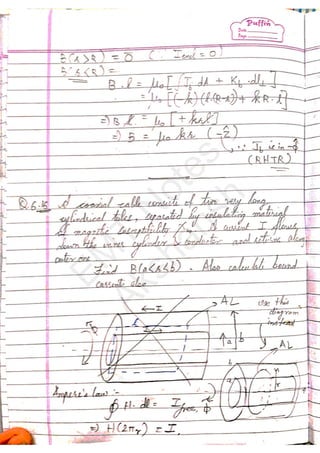 Puffin
Date
Page
B(s>R) = 0 (∵ Iencl = 0)
B(s<R) =
B.l = μ₀ [ ∫J_b dA + K_b.dl_b ]
= μ₀ [ (-k)(l(R-s)) + kR.l ]
⇒ B.l = μ₀ [ + ksl ]
⇒ B = μ₀ ks (-ẑ)
(∵ J_b is in -φ̂
(RHTR)
Q.6.5 A coaxial cable consists of two very long
cylindrical tubes, separated by insulating material
of magnetic susceptibility χm. A current I flows
down the inner cylinder conductor and returns along
outer one.
Find B(a<r<b). Also calculate bound
current also.
← I
AL
use this
diagram
instead
a b
AL
Ampere's law :-
∮ H.dl = Ifree, φ̂
⇒ H(2πr) = I.